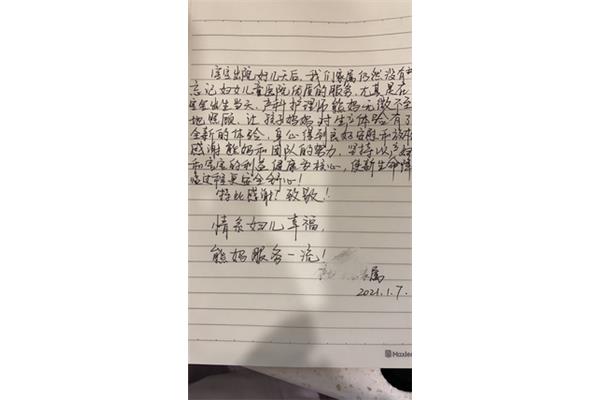 宝宝出院好几天后,我们家属仍然没有
忘记妇女儿童医院优质的服务,尤其是在
宝宝出生当天,产科护理师熊妈无微不至
地照顾,让孩子妈妈对生产体验有了
全新的体验,身心得到良好安慰和放松
感谢熊妈和团队的努力,坚持以产妇
和宝宝的利益健康为核心,使新生命降
临过程更安全舒心!
特此感谢!致敬!
情系妇儿幸福,
熊妈服务一流!
属
2021.1.7.
Maxle